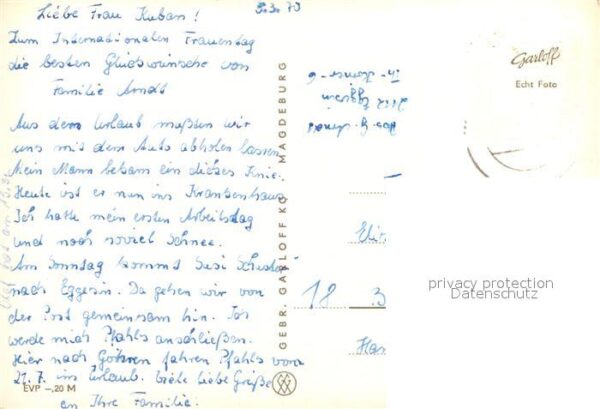 8.3.73
Liebe Frau Kuban!
Zum Internationalen Frauentag
die besten Glückwünsche von
Familie Arndt
Aus dem Urlaub mußten wir
uns mit dem Auto abholen lassen
Mein Mann bekam ein dickes Knie.
Heute ist er nun ins Krankenhaus
Ich hatte mein ersten Arbeitstag
und noch soviel Schnee.
Am Sonntag kommt Susi
nach Eggesin. Da gehen wir von
der Post gemeinsam hin. Ich
werde mich Pfahls anschließen.
Hier nach Göhren fahren Pfahls vom
21.7. in Urlaub. Viele liebe Grüße
an Ihre Familie.
EVP –,20 M
GEBR. GARLOFF KG MAGDEBURG
Eggesin
Garloff
Echt Foto
18 3
privacy protection
Datenschutz